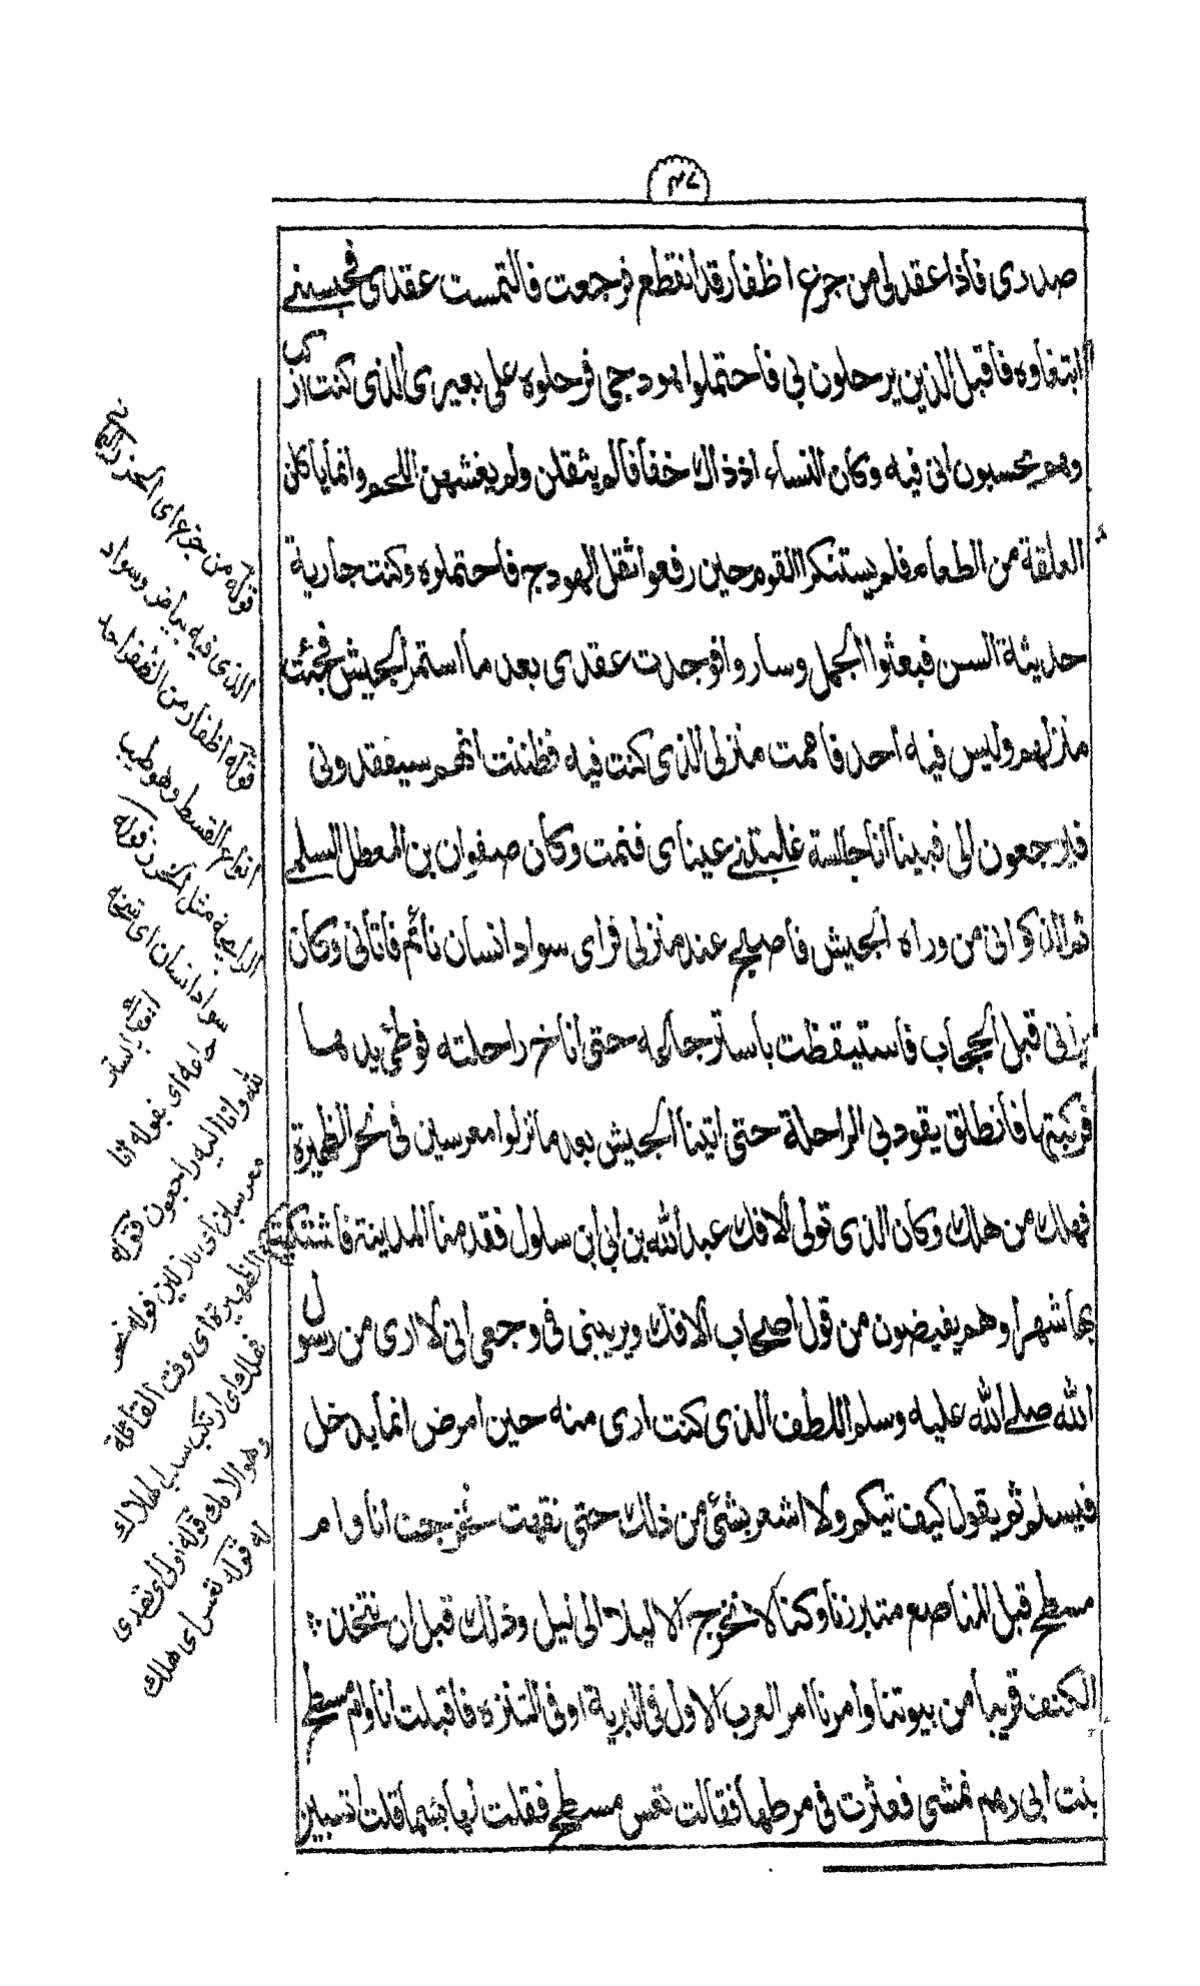 ٣٧
صدري فاذا عقد لي من جزع اظفار قد انقطع فرجعت فالتمست عقدي فحبسني
ابتغاوه فاقبل الذين يرحلون بي فاحتملوا هودجي فرحلوه على بعيري الذي كنت اركب
وهم يحسبون اني فيه وكان النساء اذ ذاك خفافا لم يثقلن ولم يغشهن اللحم وانما ياكلن
العلقة من الطعام فلم يستنكر القوم حين رفعوا ثقل الهودج فاحتملوه وكنت جارية
حديثة السن فبعثوا الجمل وساروا فوجدت عقدي بعد ما استمر الجيش فجئت
منزلهم وليس فيه احد فاممت منزلي الذي كنت فيه فظننت انهم سيفقدوني
فيرجعون الي فبينا انا جالسة غلبتني عيناي فنمت وكان صفوان بن المعطل السلمي
ثم الذكواني من وراء الجيش فاصبح عند منزلي فراى سواد انسان نائم فاتاني وكان
يراني قبل الحجاب فاستيقظت باسترجاعه حتى اناخ راحلته فوطئ يدها
فركبتها فانطلق يقود بي الراحلة حتى اتينا الجيش بعد ما نزلوا معرسين في نحر الظهيرة
فهلك من هلك وكان الذي تولى الافك عبد الله بن ابي ابن سلول فقدمنا المدينة فاشتكيت
بها شهرا وهم يفيضون من قول اصحاب الافك ويريبني في وجعي اني لا ارى من رسول
الله صلى الله عليه وسلم اللطف الذي كنت ارى منه حين امرض انما يدخل
فيسلم ثم يقول كيف تيكم ولا اشعر بشئ من ذلك حتى نقهت فخرجت انا وام
مسطح قبل المناصع متبرزنا وكنا لا نخرج الا ليلا الى ليل وذلك قبل ان نتخذ
الكنف قريبا من بيوتنا وامرنا امر العرب الاول في البرية او في التنزه فاقبلت انا وام مسطح
بنت ابي رهم نمشي فعثرت في مرطها فقالت تعس مسطح فقلت لها بئسما قلت اتسبين
قوله من جزع اى الخرز اليماني
الذي فيه بياض وسواد
قوله اظفار من الظفر احد
انواع القسط وهو طيب
الرايحة مثل البخور قوله
سواد انسان اى شخصه
لله وانا اليه راجعون قوله
معرسين اى نازلين قوله نحر
الظهيرة اى وقت القائلة
فهلك اى ارتكب سبب الهلاك
وهو الافك قوله تولى اى تصدى
له قوله تعس اى هلك